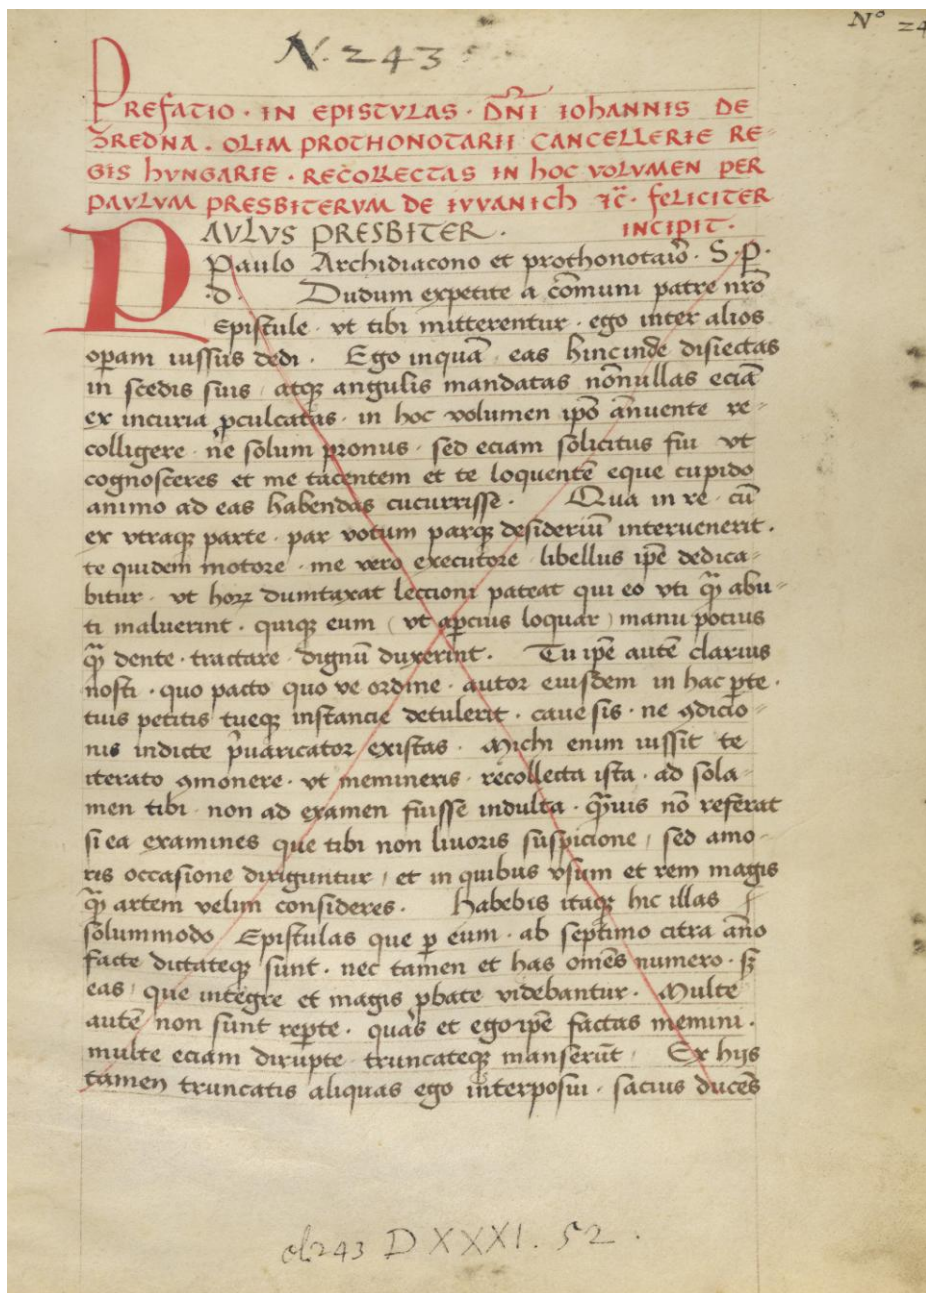 N. 243
N° 24
Prefatio · in epistulas · dn̄i iohannis de
Zredna . olim prothonotarii cancellerie re
gis hungarie . recollectas in hoc volumen per
paulum presbiterum de iwanich ⁊c̄ · feliciter
incipit ·
PAULUS PRESBITER .
Paulo Archidiacono et prothonotaī̄o · S · P ·
· d · Dudum expetite a cōmuni patre nr̄o
Epistule · vt tibi mitterentur · ego inter alios
oꝑam iussus dedi . Ego inquā · eas hincinde disiectas
in scedis suis / atqꝫ angulis mandatas nōnullas eciā
ex incuria ꝓculcatas · in hoc volumen ip̄o ānuente re⸗
colligere · ne solum pronus · sed eciam solicitus fui vt
cognosceres et me tacentem et te loquentē eque cupido
animo ad eas habendas cucurrisse . Qua in re · cū
ex vtraqꝫ parte · par votum parqꝫ desideriū intervenerit .
te quidem motore · me vero executore · libellus ip̄e dedica⸗
bitur · vt hoꝝ dumtaxat lectioni pateat qui eo vti qͣ̄ abu⸗
ti maluerint · quiqꝫ eum ( vt aꝑcius loquar ) manu pocius
qͣ̄ dente · tractare · dignū duxerint . Tu ip̄e autē clarius
nosti · quo pacto quo ve ordine · autor eiusdem in hac ꝑte ·
tuis petitis tueqꝫ instancie detulerit · cave sis · ne ꝯdicio⸗
nis indicte p̄uaricator existas . Michi enim iussit te
iterato ꝯmonere · vt memineris · recollecta ista · ad sola⸗
men tibi · non ad examen fuisse indulta · qͣ̄uis nō referat
si ea examines que tibi non liuoris suspicione / sed amo⸗
ris occasione diriguntur / et in quibus vsum et rem magis
qͣ̄ artem velim consideres . Habebis itaqꝫ hic illas
solummodo Epistulas que ꝑ eum · ab septimo citra āno
facte dictateqꝫ sunt · nec tamen et has om̄es numero · sꝫ
eas / que integre et magis ꝓbate videbantur . Multe
autē non sunt reꝑte · quas et ego ip̄e factas memini .
multe eciam dirupte truncateqꝫ manserūt / Ex hijs
tamen truncatis aliquas ego interposui · sacius ducēs
ol 243 D XXXI . 52 .